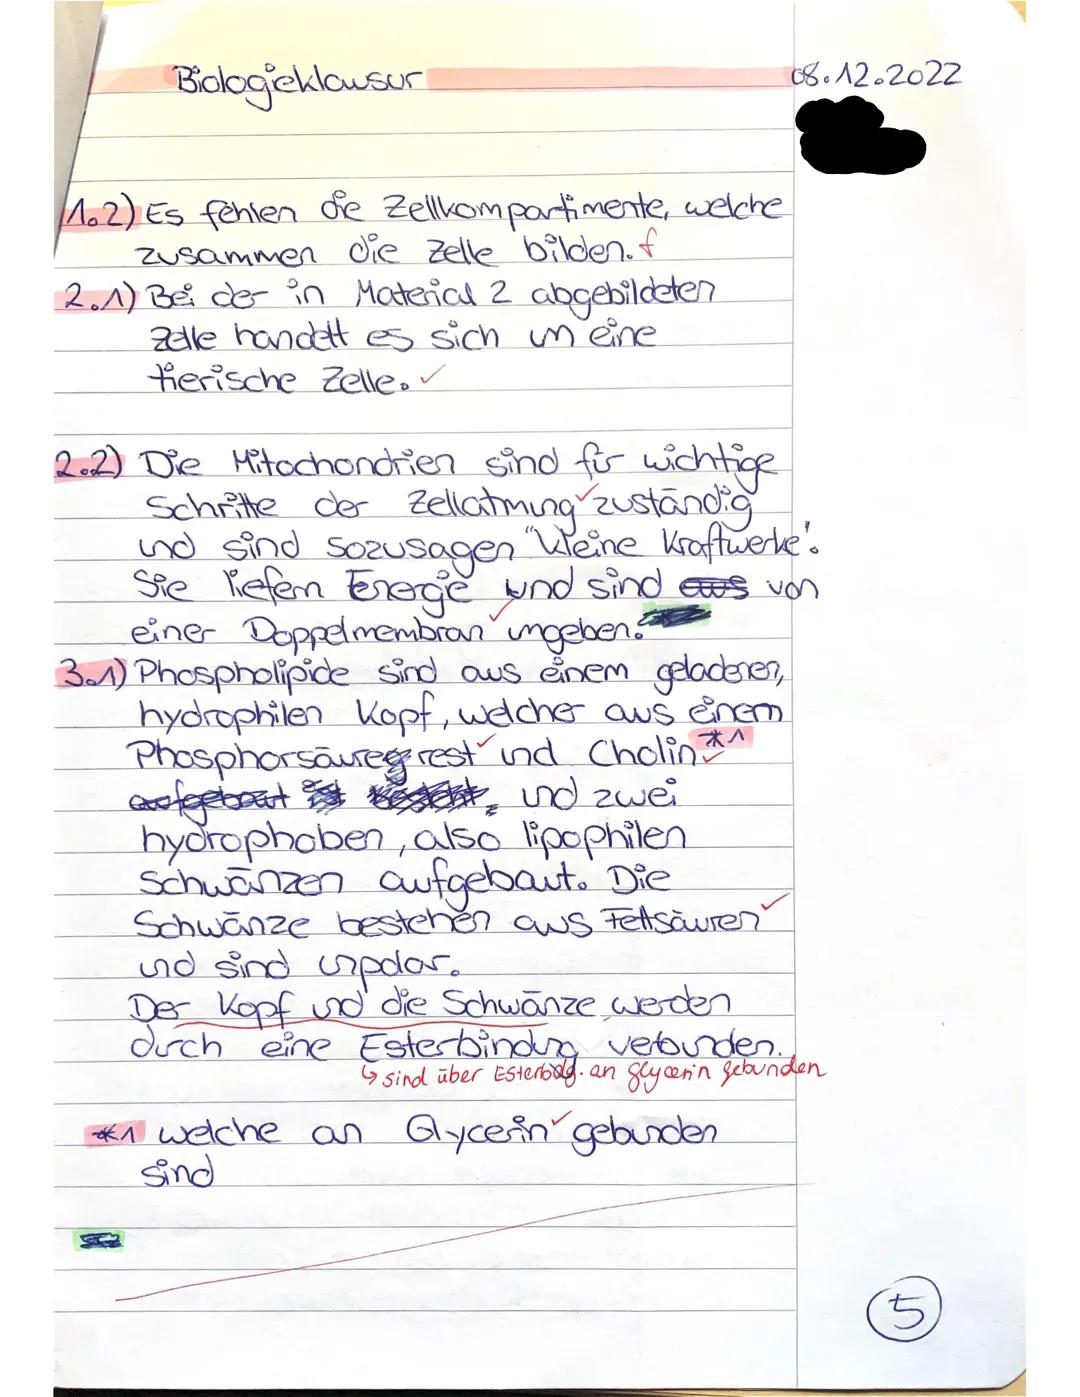 Biologieklausur
08.12.2022
1.2) Es fehlen die Zellkompartimente, welche
zusammen die Zelle bilden. f
2.1) Bei der in Material 2 abgebildeten
Zelle handelt es sich um eine
tierische Zelle. ✓
2.2) Die Mitochondrien sind für wichtige
Schritte der Zellatmung ✓ zuständig
und sind sozusagen "kleine Kraftwerke".
Sie liefern Energie und sind aus von
einer Doppelmembran ✓ umgeben.
3.1) Phospholipide sind aus einem geladenen,
hydrophilen Kopf, welcher aus einem
Phosphorsäurerest ✓ und Cholin *1 ✓
aufgebaut ist, und zwei
hydrophoben, also lipophilen
Schwänzen aufgebaut. Die
Schwänze bestehen aus Fettsäuren ✓
und sind unpolar.
Der Kopf und die Schwänze werden
durch eine Esterbindung verbunden.
↳ sind über Esterbdg. an Glycerin gebunden
*1 welche an Glycerin ✓ gebunden
sind
5